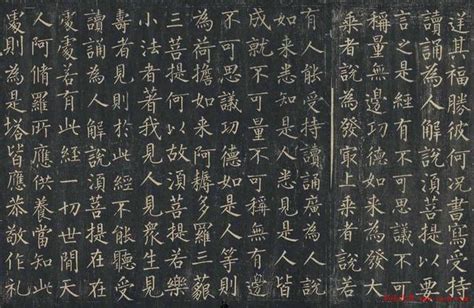 逆其福勝彼何況書寫受持
讀誦為人解說須菩提以要
言之是經有不可思議不可
稱量無邊功德如来為發大
乗者說為發冣上乗者說若
有人能受持讀誦廣為人說
如来悉知是人悉見是人皆
成就不可量不可稱無有邊
不可思議功德如是人等則
為荷擔如来阿耨多羅三藐
三菩提何以故須菩提若樂
小法者著我見人見眾生見
壽者見則於此經不能聽受
讀誦為人解說須菩提在在
處處若有此經一切世間天
人阿脩羅所應供養當知此
處則為是塔皆應恭敬作礼